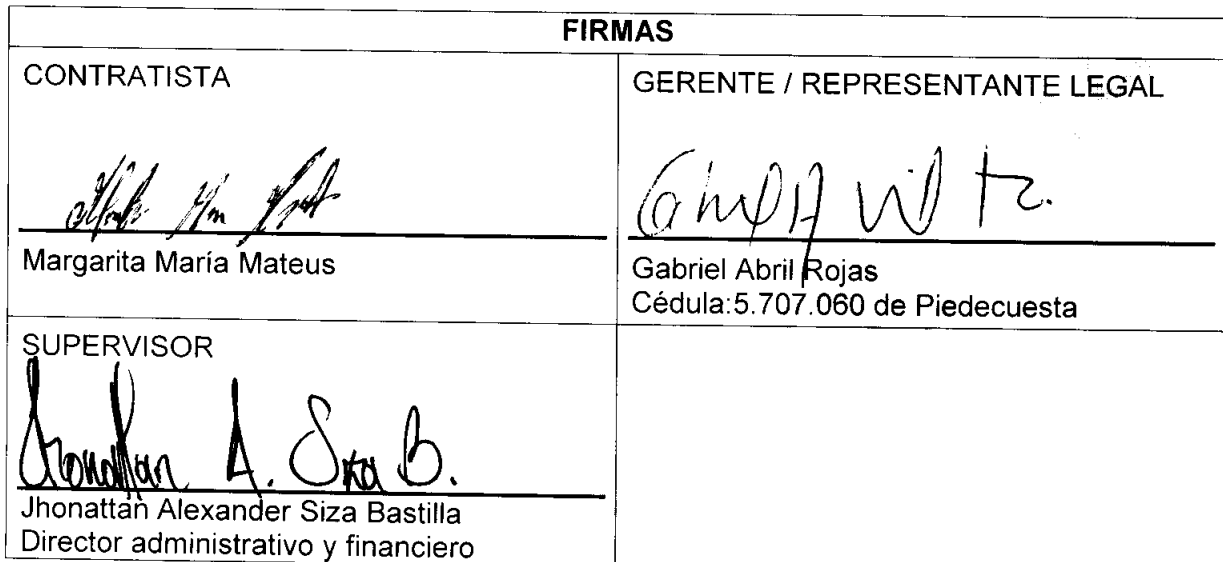 FIRMAS
CONTRATISTA
Margarita María Mateus
GERENTE / REPRESENTANTE LEGAL
Gabriel Abril Rojas
Cédula:5.707.060 de Piedecuesta
SUPERVISOR
Jhonattan A. Siza B.
Jhonattan Alexander Siza Bastilla
Director administrativo y financiero